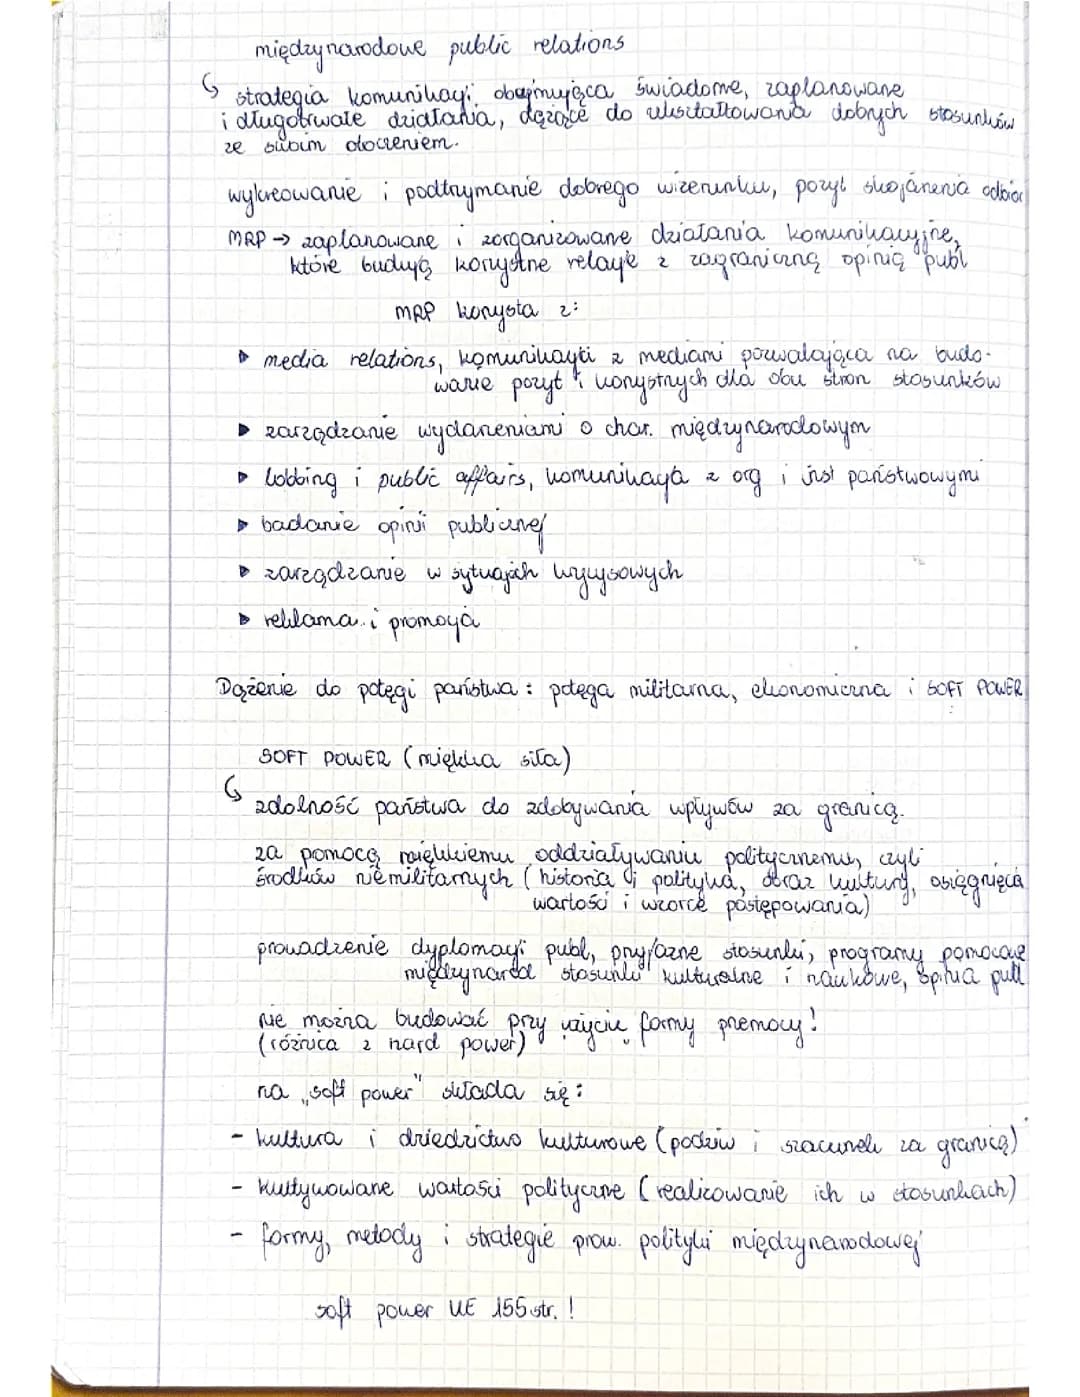 międzynarodowe public relations
strategia komunikacji obejmująca świadome, zaplanowane
i długotrwałe działania, dążące do ukształtowania dobrych stosunków
ze swoim otoczeniem.
wykreowanie i podtrzymanie dobrego wizerunku, pozyt skojarzenia odbior
MRP → zaplanowane i zorganizowane działania komunikacyjne,
które budują korzystne relacje z zagraniczną opinią publ
MRP korzysta z:
▶ media relations, komunikacji z mediami pozwalająca na budo-
wanie pozyt i korzystnych dla obu stron stosunków
▶ zarządzanie wydarzeniami o char. międzynarodowym
▶ lobbing i public affairs, komunikacja z org i inst państwowymi
▶ badanie opinii publicznej
▶ zarządzanie w sytuacjach kryzysowych
▶ reklama i promocja
Dążenie do potęgi państwa: potęga militarna, ekonomiczna i SOFT POWER
SOFT POWER (miękka siła)
zdolność państwa do zdobywania wpływów za granicą.
za pomocą miękkiemu oddziaływaniu politycznemu, czyli
środków niemilitarnych (historia i polityka, obraz kultury, osiągnięcia
wartości i wzorce postępowania)
prowadzenie dyplomacji publ, przyjazne stosunki, programy pomocowe
międzynarod stosunki kulturalne i naukowe, opinia publ
nie można budować przy użyciu formy przemocy!
(różnica z hard power)
na „soft power" składa się:
- kultura i dziedzictwo kulturowe (podziw i szacunek za granicą)
- kultywowane wartości polityczne (realizowanie ich w stosunkach)
- formy, metody i strategie prow. polityki międzynarodowej
soft power UE 155 str. !